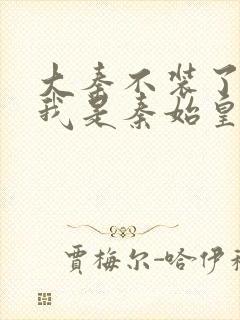 大秦不装了
我是秦始皇
賈梅尔-哈伊科